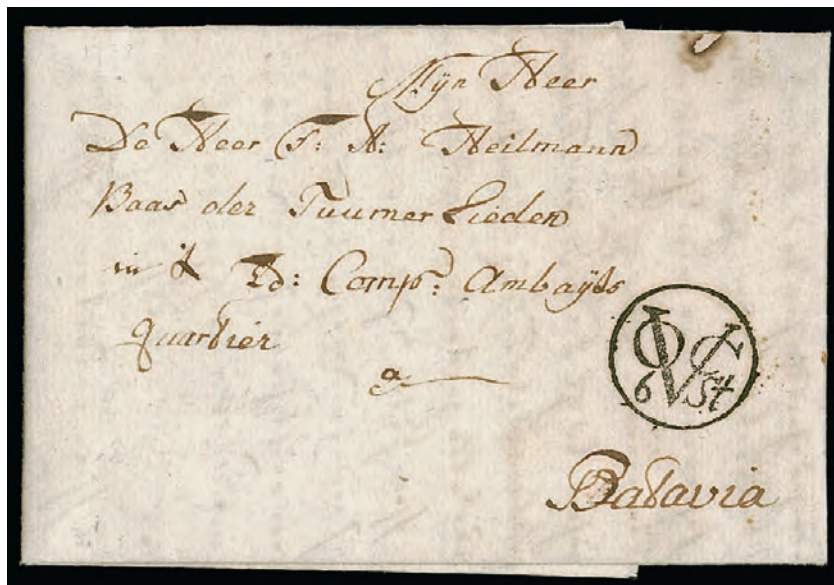 Mÿn Heer
De Heer F: A: Heilmann
Baas der Tuumer Lieden
in 't Ed: Comp: Ambagts
quartier
a
VOC
6 St
Batavia